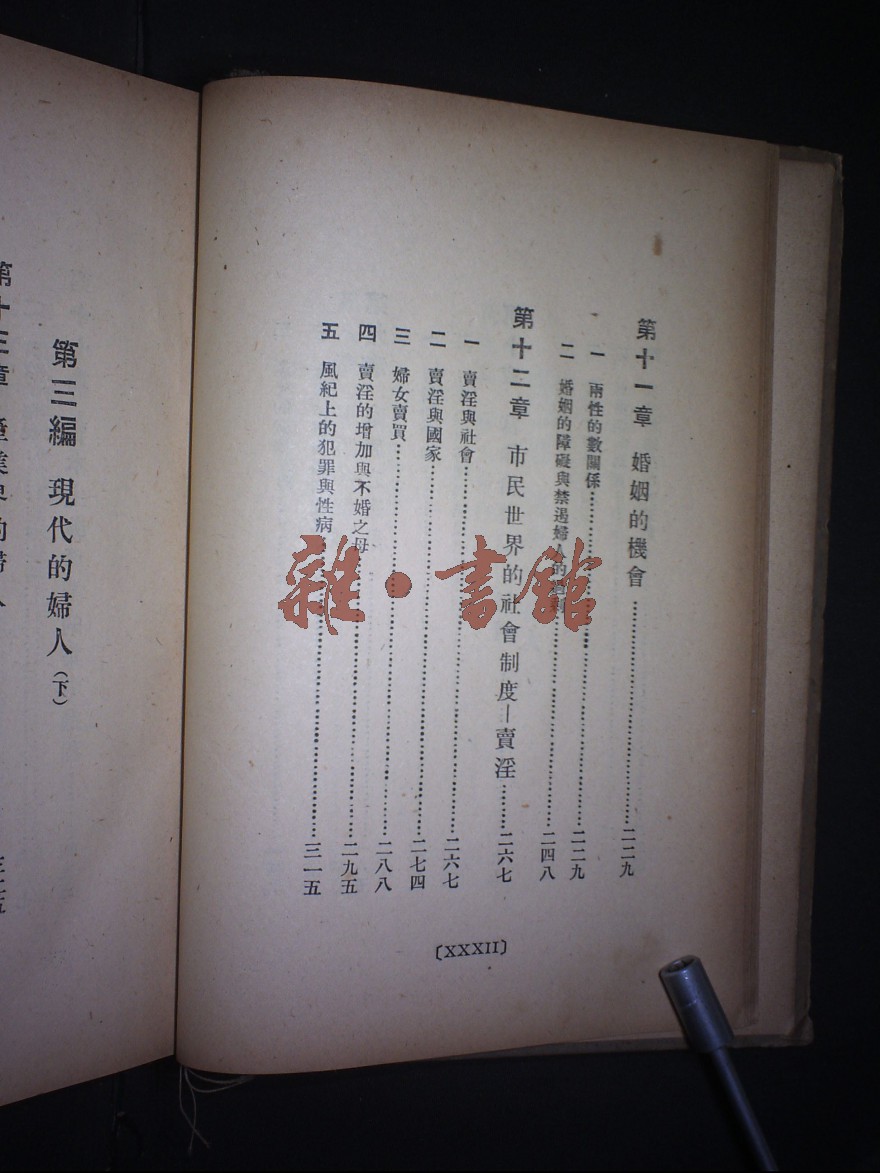 第十一章 婚姻的機會…………二二九
一 兩性的數關係…………二二九
二 婚姻的障礙與禁遏婦人的…………二四八
第十二章 市民世界的社會制度—賣淫………二六七
一 賣淫與社會…………二六七
二 賣淫與國家…………二七四
三 婦女賣買…………二八八
四 賣淫的增加與不婚之母…………二九五
五 風紀上的犯罪與性病…………三一五
〔XXXII〕
第三編 現代的婦人(下)
第十三章
雜·書館